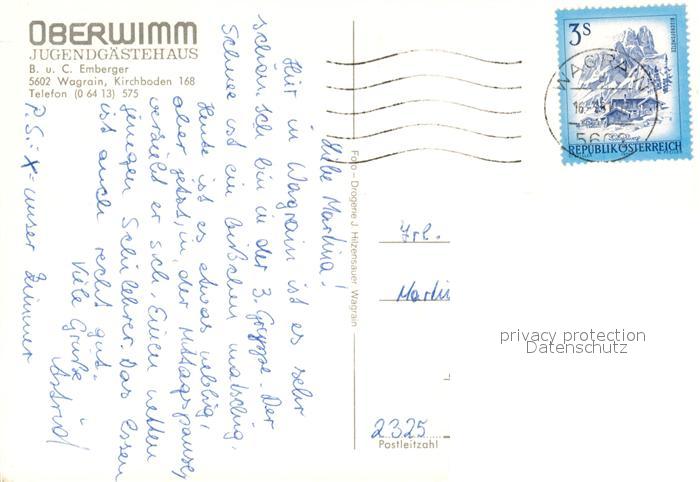 OBERWIMM
JUGENDGÄSTEHAUS
B. u. C. Emberger
5602 Wagrain, Kirchboden 168
Telefon (0 64 13) 575
Liebe Martina!
Hier in Wagrain ist es sehr
schön. Ich bin in der 3. Gruppe. Der
Schnee ist ein bißchen matschig.
Heute ist es etwas neblig,
aber jetzt, in der Mittagspause,
verzieht er sich. Einen netten
jungen Schilehrer. Das Essen
ist auch recht gut.
Viele Grüße
Astrid
P.S.: X = unser Zimmer
Foto - Drogerie J. Hilzensauer Wagrain
3S
BISCHOFSMÜTZE
REPUBLIK ÖSTERREICH
WAGRAIN
Frl.
Martin
privacy protection
Datenschutz
2325
Postleitzahl